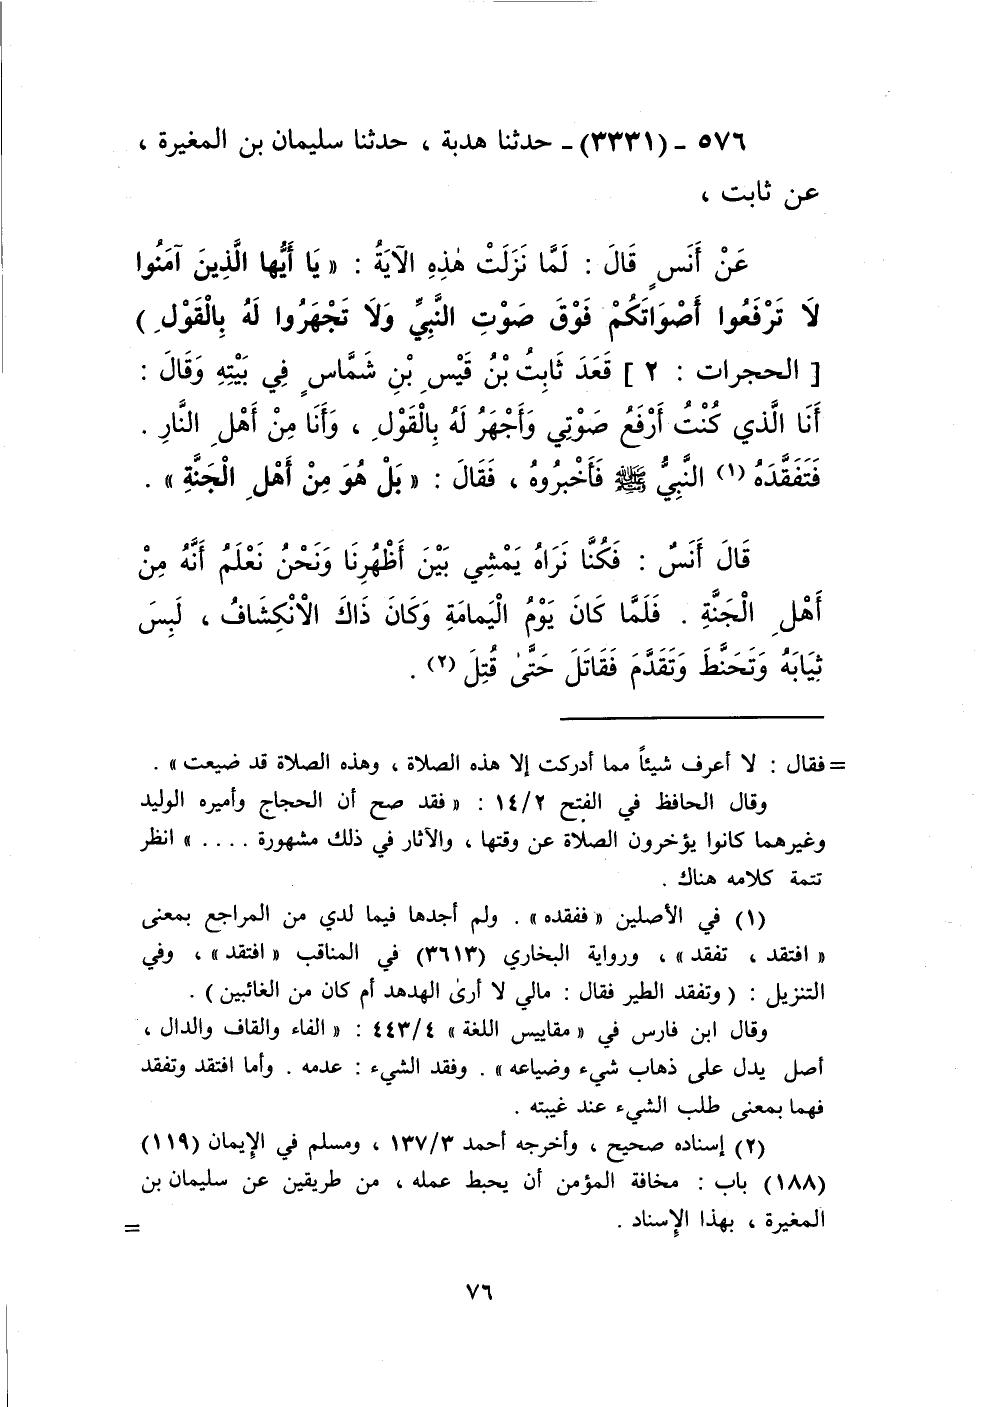 ٥٧٦ ـ (٣٣٣١)ـ حدثنا هدبة ، حدثنا سليمان بن المغيرة ،
عن ثابت ،
عَنْ أَنَسٍ قَالَ : لَمَّا نَزَلَتْ هٰذِهِ الآيَةُ : « يَا أَيُّهَا الَّذِينَ آمَنُوا
لاَ تَرْفَعُوا أَصْوَاتَكُمْ فَوْقَ صَوْتِ النَّبِيِّ وَلاَ تَجْهَرُوا لَهُ بِالْقَوْلِ )
[ الحجرات : ٢ ] قَعَدَ ثَابِتُ بْنُ قَيْسِ بْنِ شَمَّاسٍ فِي بَيْتِهِ وَقَالَ :
أَنَا الَّذي كُنْتُ أَرْفَعُ صَوْتِي وَأَجْهَرُ لَهُ بِالْقَوْلِ ، وَأَنَا مِنْ أَهْلِ النَّارِ .
فَتَفَقَّدَهُ (١) النَّبِيُّ ﷺ فَأَخْبَرُوهُ ، فَقَالَ : « بَلْ هُوَ مِنْ أَهْلِ الْجَنَّةِ » .
قَالَ أَنَسٌ : فَكُنَّا نَرَاهُ يَمْشِي بَيْنَ أَظْهُرِنَا وَنَحْنُ نَعْلَمُ أَنَّهُ مِنْ
أَهْلِ الْجَنَّةِ . فَلَمَّا كَانَ يَوْمُ الْيَمامَةِ وَكَانَ ذَاكَ الْانْكِشَافُ ، لَبِسَ
ثِيَابَهُ وَتَحَنَّطَ وَتَقَدَّمَ فَقَاتَلَ حَتَّىٰ قُتِلَ (٢) .
= فقال : لا أعرف شيئاً مما أدركت إلا هذه الصلاة ، وهذه الصلاة قد ضيعت » .
وقال الحافظ في الفتح ١٤/٢ : « فقد صح أن الحجاج وأميره الوليد
وغيرهما كانوا يؤخرون الصلاة عن وقتها ، والآثار في ذلك مشهورة .... » انظر
تتمة كلامه هناك .
(١) في الأصلين « ففقده » . ولم أجدها فيما لدي من المراجع بمعنى
« افتقد ، تفقد » ، ورواية البخاري (٣٦١٣) في المناقب « افتقد » ، وفي
التنزيل : ( وتفقد الطير فقال : مالي لا أرىٰ الهدهد أم كان من الغائبين ) .
وقال ابن فارس في « مقاييس اللغة » ٤٤٣/٤ : « الفاء والقاف والدال ،
أصل يدل على ذهاب شيء وضياعه » . وفقد الشيء : عدمه . وأما افتقد وتفقد
فهما بمعنى طلب الشيء عند غيبته .
(٢) إسناده صحيح ، وأخرجه أحمد ١٣٧/٣ ، ومسلم في الإيمان (١١٩)
(١٨٨) باب : مخافة المؤمن أن يحبط عمله ، من طريقين عن سليمان بن
المغيرة ، بهذا الإسناد . =
٧٦